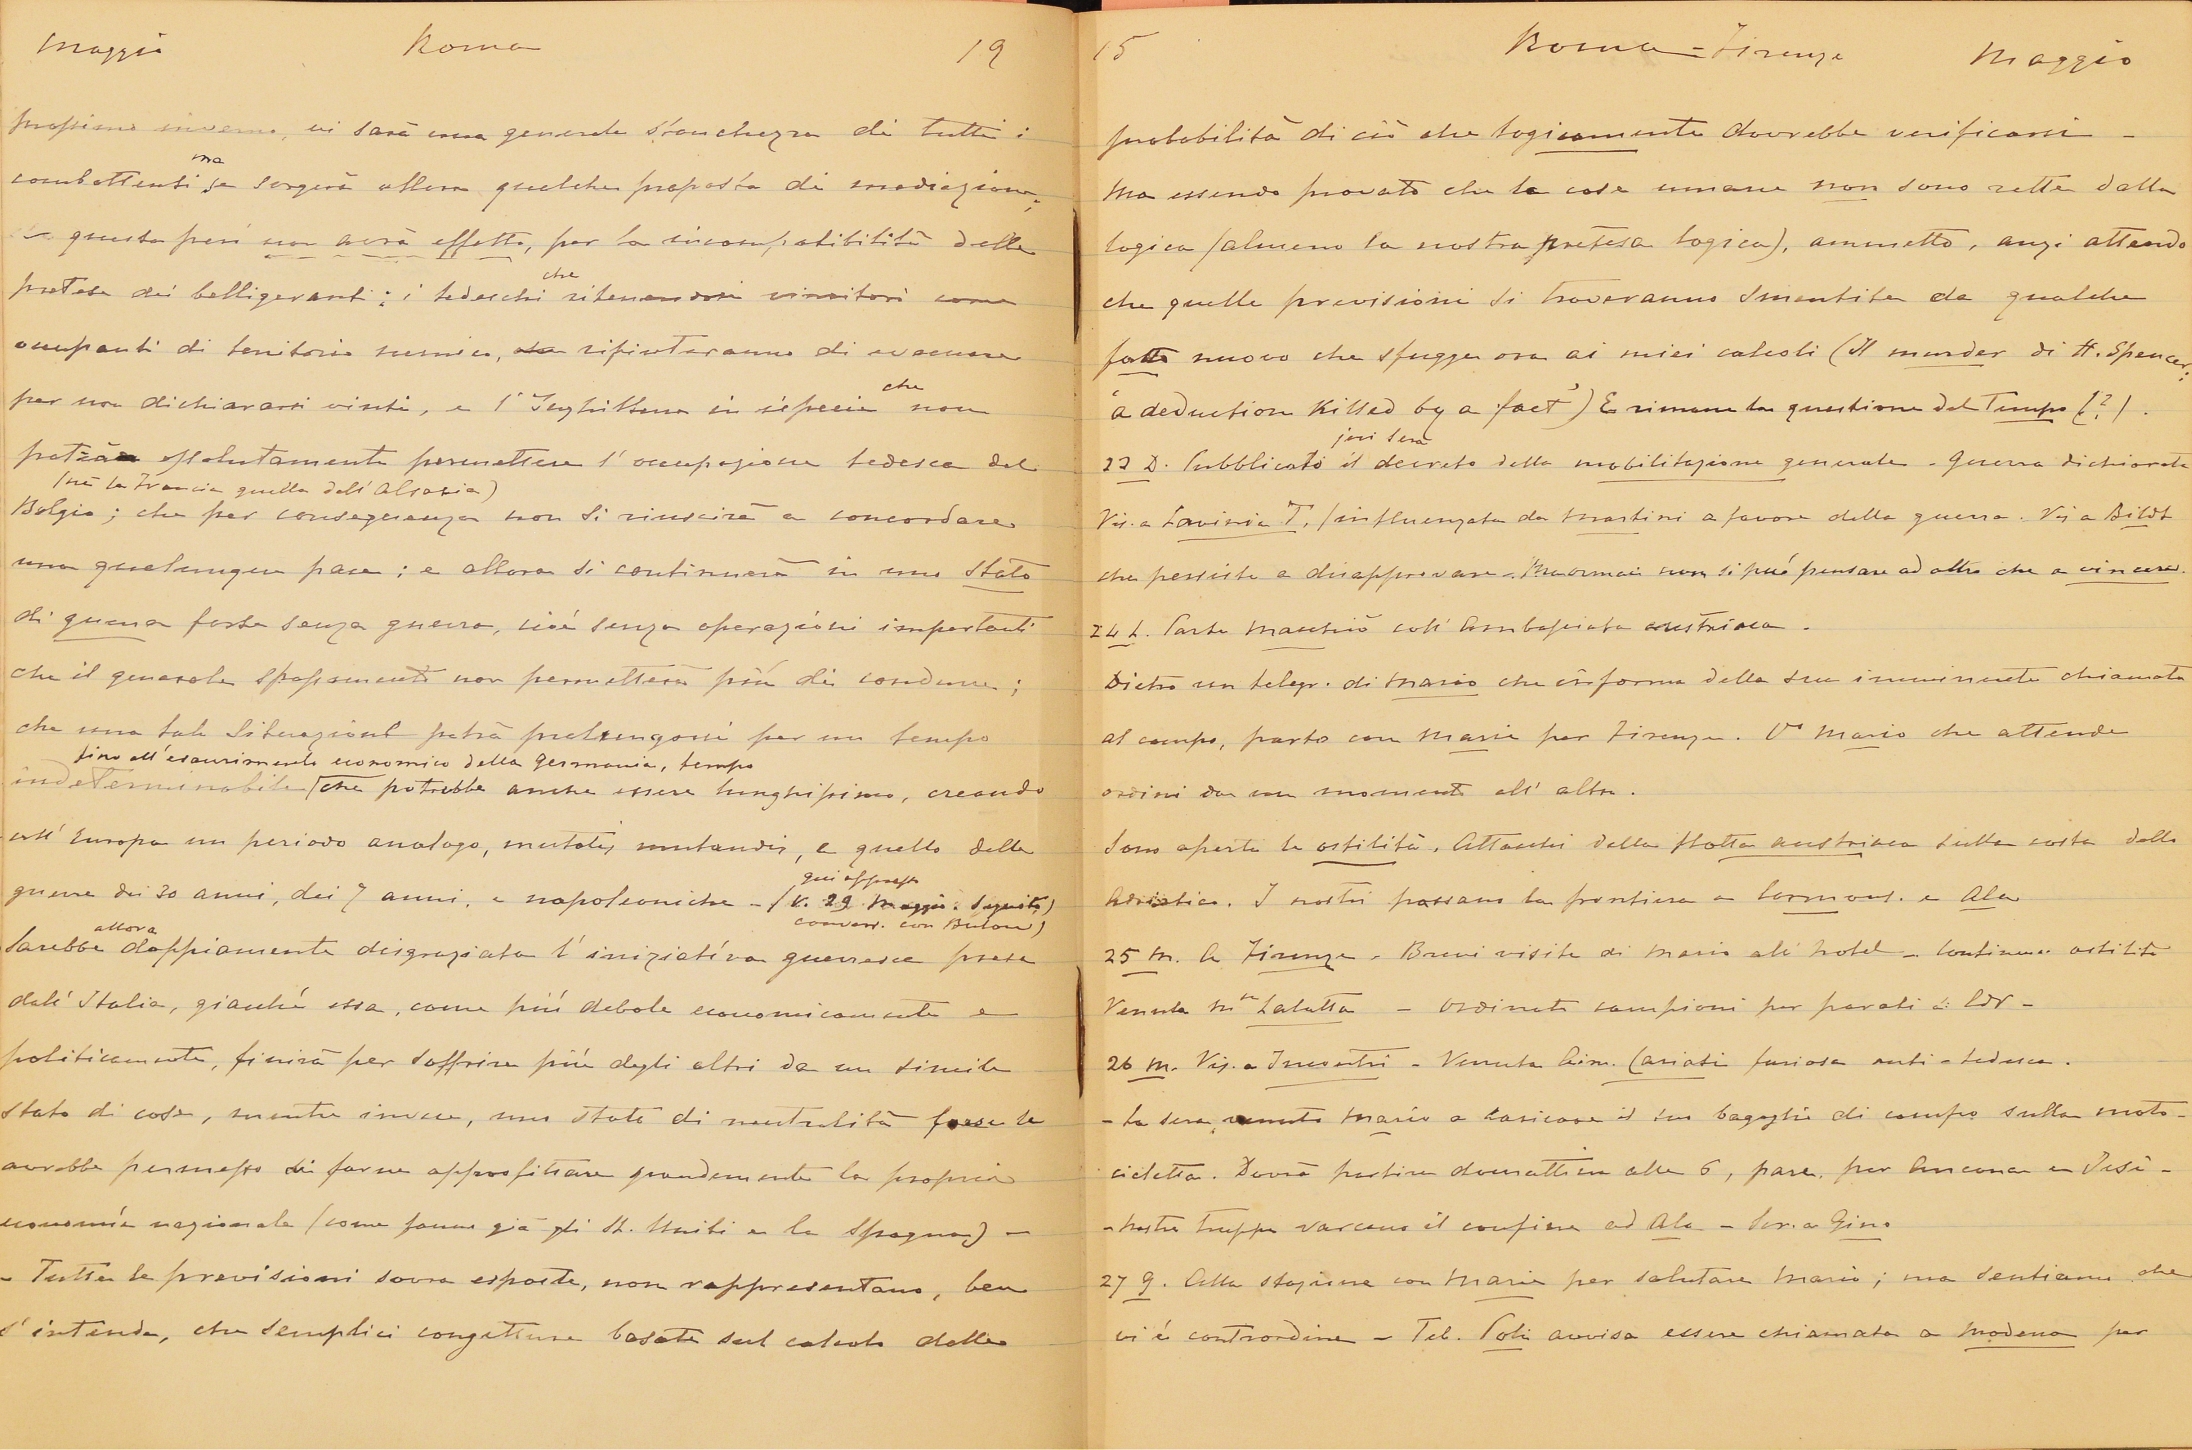 Maggio Roma 19
prossimo inverno, vi sarà una generale stanchezza di tutti i
ma
combattenti se sorgerà allora qualche proposta di mediazione,
questa però non avrà effetto, per la incompatibilità delle
che
pretese dei belligeranti; i tedeschi vincitori come
occupanti di territorio nemico, rifiuteranno di evacuare
che
per non dichiararsi vinti, e l'Inghilterra in ispecie non
potrà assolutamente permettere l'occupazione tedesca del
(nè la Francia quella dell'Alsazia)
Belgio; che per conseguenza non si riuscirà a concordare
una qualunque pace; e allora si continuerà in uno stato
di guerra forse senza guerra, cioè senza operazioni importanti
che il generale spossamento non permetterà più di condurre;
che una tale situazione potrà prolungarsi per un tempo
fino all'esaurimento economico della Germania, tempo
indeterminabile (che potrebbe anche essere lunghissimo, creando
all'Europa un periodo analogo, mutatis mutandis, a quello delle
qui appresso
guerre dei 30 anni, dei 7 anni, e napoleoniche - (v. 29 Maggio.
convers. con Bülow)
allora
Sarebbe doppiamente disgraziata l'iniziativa guerresca presa
dall'Italia, giacchè essa, come più debole economicamente e
politicamente, finirà per soffrire più degli altri da un simile
stato di cose, mentre invece, uno stato di neutralità forse le
avrebbe permesso di farne approfittare grandemente la propria
economia nazionale (come fanno già gli St. Uniti e la Spagna) -
- Tutte le previsioni sovra esposte, non rappresentano, ben
s'intende, che semplici congetture basate sul calcolo delle
15 Roma - Firenze Maggio
probabilità di ciò che logicamente dovrebbe verificarsi -
Ma essendo provato che le cose umane non sono rette dalla
logica (almeno la nostra pretesa logica), ammetto, anzi attendo
che quelle previsioni si troveranno smentite da qualche
fatto nuovo che sfugge ora ai miei calcoli (Il murder di H. Spencer;
'a deduction killed by a fact') E rimane la questione del Tempo (?).
jeri sera
23 D. Pubblicato il decreto della mobilitazione generale - Guerra dichiarata
Vis. a Lavinia T. (influenzata da Martini a favore della guerra. Vis a Bildt
che persiste a disapprovare - Ma ormai non si può pensare ad altro che a vincere.
24 L. Parte Macchio coll'Ambasciata austriaca.
Dietro un telegr. di Mario che informa della sua imminente chiamata
al campo, parto con Maria per Firenze. Vo Mario che attende
ordini da un momento all'altro.
Sono aperte le ostilità. Attacchi della flotta austriaca sulla costa dello
Adriatico. I nostri passano la frontiera a Cormons. e Ala
25 M. A Firenze - Brevi visite di Mario all'hotel - Continua ostilità
Venuta Mme - Ordinati campioni per parati
26 M. Vis. a Incontri - Venuta furiosa anti-tedesca.
- La sera, venuto Mario a caricare il suo bagaglio di campo sulla moto-
cicletta. Dovrà partire domattina alle 6, pare, per Ancona e Jesi -
- Nostre truppe varcano il confine ad Ala - Scr. a Gino
27 G. Alla stazione con Maria per salutare Mario; ma sentiamo che
vi è contrordine - Tel. Poli avvisa essere chiamata a Modena per